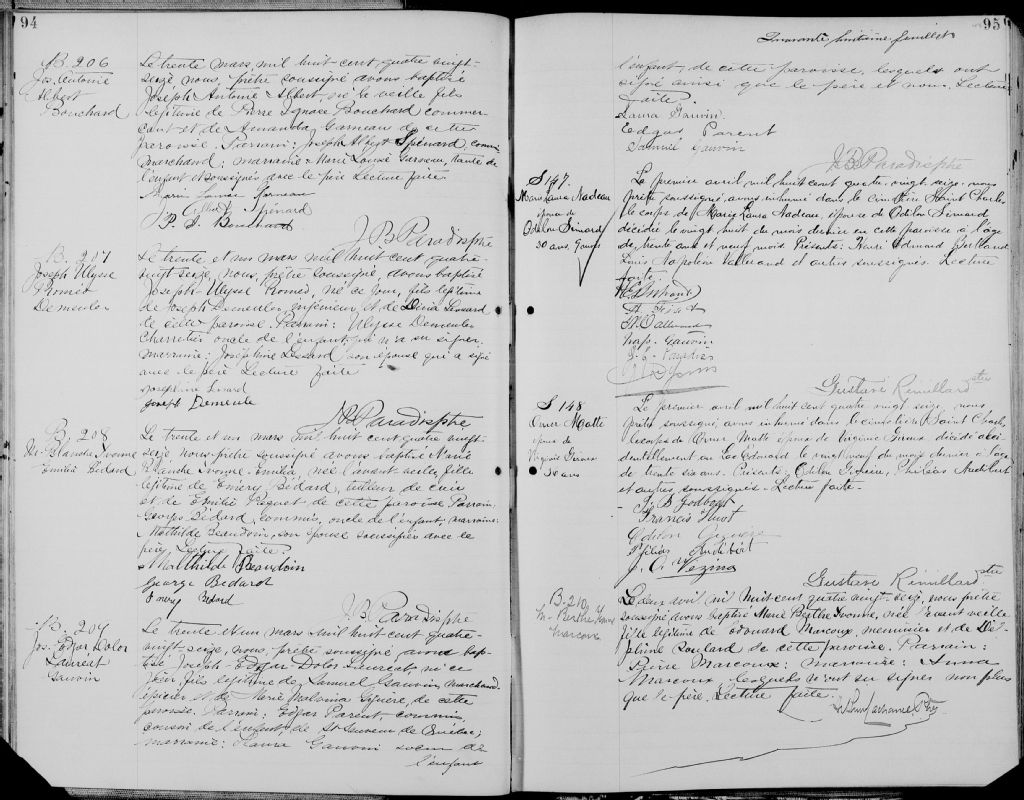 94
B. 206
Jos. Antoine
Albert
Bouchard
Le trente mars mil huit cent quatre vingt-
seize nous, prêtre soussigné avons baptisé
Joseph Antoine Albert, né la veille fils
légitime de Pierre Ignace Bouchard commer-
çant et de Amanda Garneau de cette
paroisse. Parrain: Joseph Albert Spénard, commis
marchand; marraine: Marie Louise Garneau, tante de
l'enfant soussignés avec le père Lecture faite.
Marie Louise Garneau
J. Albert Spénard
P. I. Bouchard
J B Paradis ptre
B. 207
Joseph Ulysse
Roméo
Demeules
Le trente et un mars mil huit cent quatre-
vingt seize, nous, prêtre soussigné, avons baptisé
Joseph-Ulysse Roméo, né ce jour, fils légitime
de Joseph Demeules, ingénieur et de Lessard
de cette paroisse. Parrain: Ulysse Demeules
Charretier oncle de l'enfant qui n'a su signer,
marraine: Joséphine Lessard son épouse qui a signé
avec le père Lecture faite
Josephine Lesard
Joseph Demeule
JB Paradis ptre
B. 208
M. Blanche Yvonne
Emilia Bédard
Le trente et un mars mil huit cent quatre vingt-
seize, nous prêtre soussigné avons baptisé Marie
Blanche Yvonne Emilia, née l'avant veille, fille
légitime de Emery Bédard, tailleur de cuir
et de Emilie Paquet de cette paroisse Parrain
Georges Bédard, commis, oncle de l'enfant, marraine:
Mathilde Beaudoin, son épouse soussignés avec le
père, Lecture faite.
Malthilde Beaudoin
George Bedard
Emery Bedard
J. B. Paradis ptre
B. 209
Jos. Edgar Dolor
Lauréat
Gauvin
Le trente et un mars mil huit cent quatre-
vingt-seize, nous, prêtre soussigné avons bap-
tisé Joseph-Edgar Dolor Lauréat né ce
jour, fils légitime de Samuel Gauvin, marchand
épicier et de Marie Malvina Giguère, de cette
paroisse. Parrain: Edgar Parent, commis,
cousin de l'enfant de St Sauveur de Québec;
marraine: Laura Gauvin soeur de
l'enfant
95
Quarante huitième feuillet
l'enfant, de cette paroisse, lesquels ont
signé ainsi que le père et nous. Lecture
faite.
Laura Gauvin
Edgar Parent
Samuel Gauvin
J. B. Paradis ptre
S 147.
Marie Laura Nadeau
épouse de
Odilon Simard
30 ans, 9 mois
Le premier avril mil huit cent quatre-vingt-seize, nous
prêtre soussigné, avons inhumé dans le cimetière Saint Charles
le corps de Marie Laura Nadeau, épouse de Odilon Simard
décédée le vingt huit du mois dernier en cette paroisse à l'âge
de trente ans et neuf mois. Présents: Henri Edmond
Louis Napoléon Vallerand et autres soussignés. Lecture
faite.
Nap. Gauvin
J. E. Paradis
Gustave Rémillard ptre
S 148
Omer Matte
époux de
Virginie Giroux
30 ans
Le premier avril mil huit cent quatre vingt seize, nous
prêtre soussigné, avons inhumé dans le cimetière Saint Charles,
le corps de Omer Matte époux de Virginie Giroux décédé acci-
dentellement en le vingt neuf du mois dernier à l'âge
de trente six ans. Présents, Odilon Giguère, Philéas Audibert
et autres soussignés. Lecture faite.
J. B Godbout
Francis Huot
Odilon Giguère
Philias Audibert
J. O. Vezina
Gustave Rémillard ptre
B. 210
M. Berthe Yvonne
Marcoux
Le deux avril mil huit cent quatre-vingt-seize, nous prêtre
soussigné avons baptisé Marie Berthe Yvonne, née l'avant veille
fille légitime de Edouard Marcoux, menuisier et de Del-
phine Roulard de cette paroisse. Parrain:
Pierre Marcoux; marraine: Anna
Marcoux, lesquels n'ont su signer non plus
que le père. Lecture faite.